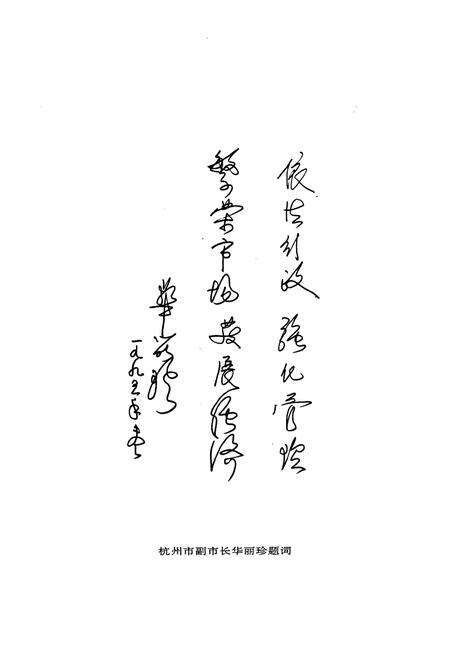 依法行政 强化管理
繁荣市场 发展经济
华丽珍
一九九五年春
杭州市副市长华丽珍题词